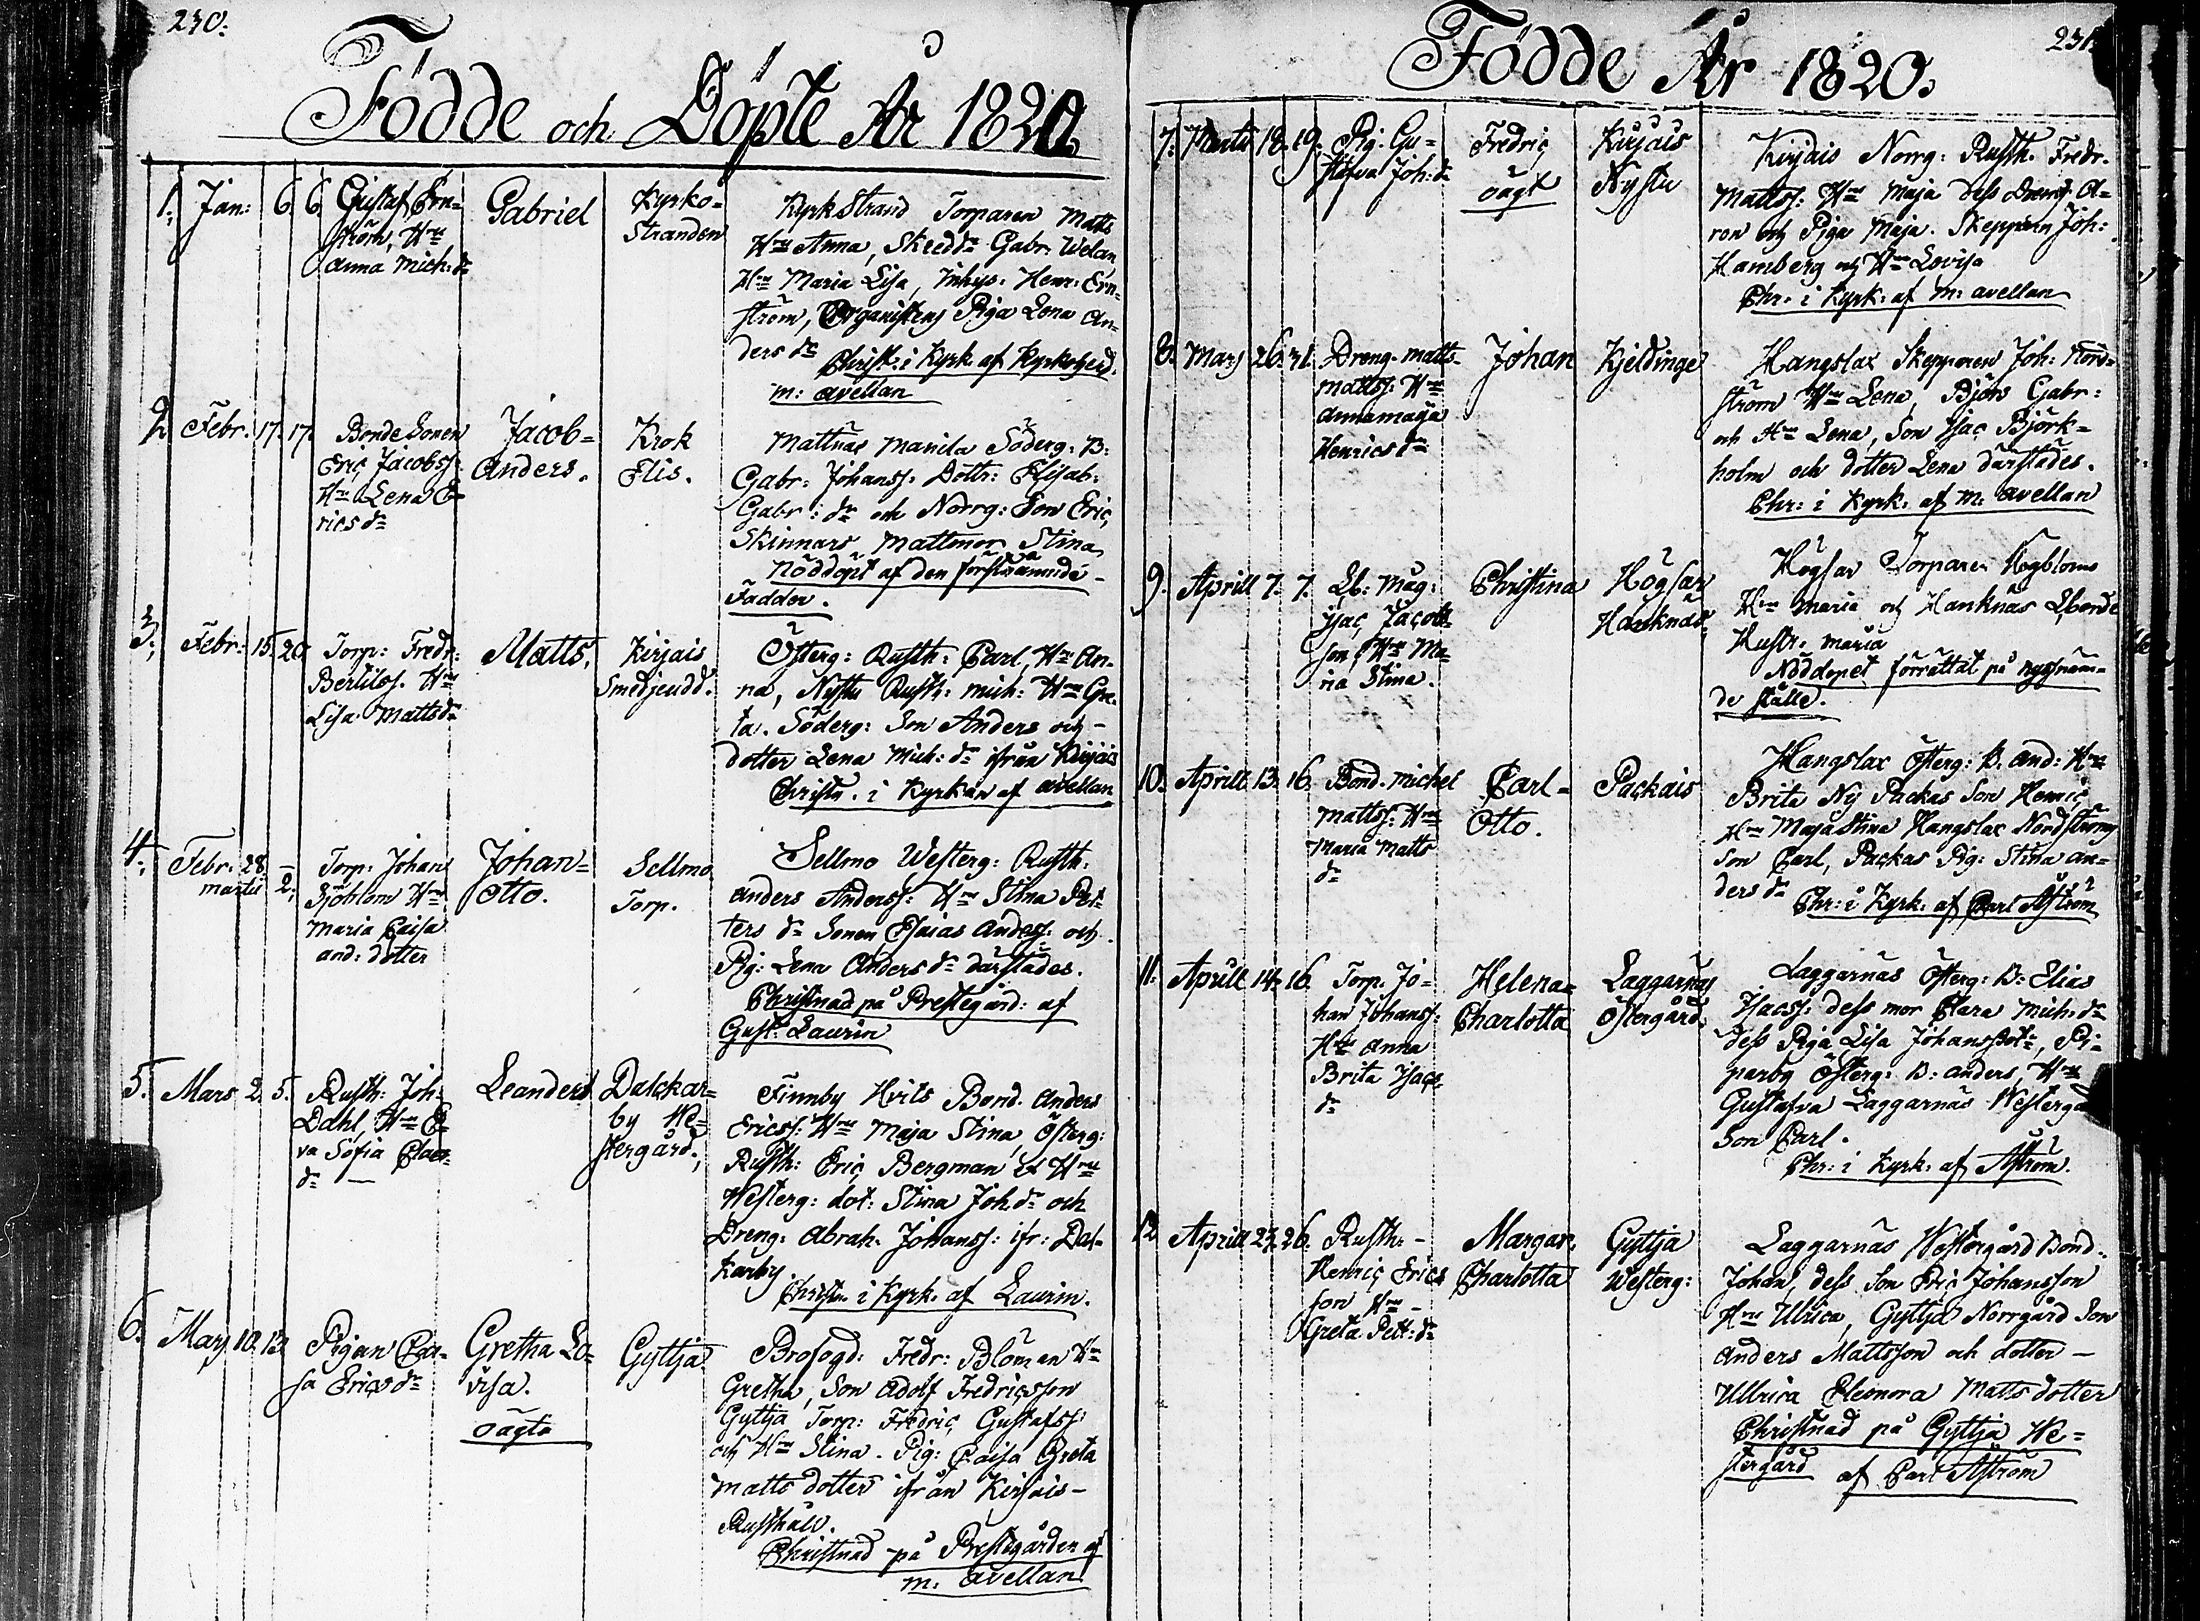 230.
Födde och Döpte År 1820
1. Jan: 6. 6. Gustaf Ern=
ström, Hru
Anna Mich: dr
Gabriel
Kyrko=
Stranden
Kyrkstrand Torparen Matts
Hru Anna, Skredd: Gabr: Welan
Hru Maria Lisa, Inhys: Henr: Ern=
ström, Organistens Piga Lena An=
ders dr
Christ. i Kyrk. af Kyrkoherd.
M: Avellan
2. Febr. 17. 17. BondeSonen
Eric Jacobss:
Hru Lena E=
rics dr
Jacob=
Anders.
Krok
Elis.
Mattnäs Manila Söderg: B:
Gabr: Johanss. Dottr: Elisab:
Gabr: dr och Norrg: Son Eric,
Skinnars Mattmor Stina
Nöddöpt af den förstnämnde
Fadder.
3. Febr. 15. 20 Torp: Fredr:
Bertilss. Hru
Lisa Matts dr
Matts.
Kirjais
Smedjeudd.
Österg: Rusth: Carl, Hru An=
na, Nystu Rusth: Mich: Hru Gre=
ta. Söderg: Son Anders och
dotter Lena Mich: dr ifrån Kirjais
Christn. i Kyrkan af Avellan
4. Febr. 28. –
Martii 2.
Torp: Johan
Sjöblom Hru
Maria Caisa
And: dotter
Johan=
Otto.
Sellmo
Torp.
Sellmo Westerg: Rusth:
Anders Anderss: Hru Stina Pet=
ters dr Sonen Esaias Anderss. och
Pig: Lena Anders dr därstädes.
Christnad på Prestegård: af
Gust: Laurin
5. Mars 2. 5. Rusth: Joh:
Dahl, Hru E=
va Sofia Claes
dr —
Leanders
Dalckar=
by We=
stergård.
Finnby Hvits Bond. Anders
Ericss. Hru Maja Stina, Österg:
Rusth: Eric Bergman et Hru
Westerg: dot: Stina Joh dr och
Dreng: Abrah. Johanss: ifr: Dal=
karby
Christn. i Kyrk. af Laurin.
6. Mars 10. 13. Pigan Cai=
sa Erics dr
Gretha Lo=
visa.
oägta
Gyttja
Brofogd: Fredr: Blöman Hru
Gretha, Son Adolf Fredricsson
Gyttja Torp: Fredric Gustafss:
och Hru Stina. Pig: Caisa Greta
Matts dotter ifrån Kirjais
Rusthåll.
Christnad på Prestegården af
M: Avellan
231.
Födde År 1820.
7. Martii 18. 19. Pig: Gu=
stafva Joh: dr
Fredric
oägt
Kirjais
Nystu
Kirjais Norrg: Rusth. Fredr.
Mattss: Hru Maja dess Dreng A=
ron och Piga Maja. Skepparen Joh:
Hamberg och Hru Lovisa
Chr. i Kyrk: af M: Avellan
8. Mars 26. 31. Dreng. Matts
Mattss: Hru
Annamaja
Henrics dr
Johan
Kjeldinge
Hangslax Skepparen Joh: Nord=
ström Hru Lena, Björs Gabr:
och Hru Lena, Son Isac Björk=
holm och dotter Lena därstädes.
Chr: i Kyrk. af M: Avellan
9. Aprill 7. 7. Lb: Måg:
Isac Jacobs
son, Hru Ma=
ria Stina.
Christina
Högsar
Hanknäs.
Högsar Torparen Högbloms
Hru Maria och Hanknäs Lbonde
Hustr: Maria
Nöddopet förrättat på nyssnäm=
de ställe.
10. Aprill 13. 16. Bond. Michel
Mattss: Hru
Maria Matts
dr
Carl=
Otto.
Packais
Hangslax Österg: B. And: Hru
Brita Ny Packas Son Henric
Hru Majastina Hangslax Nordströms
Son Carl, Packas Pig: Stina An=
ders dr
Chr: i Kyrk. af Carl Åström
11. Aprill 14. 16. Torp. Jo=
han Johanss:
Hru Anna
Brita Isacs
dr
Helena=
Charlotta
Laggarnäs
Östergård.
Laggarnäs Österg: B: Elias
Isacss: dess mor Clara Mich: dr
dess Piga Lisa Johanssdotr, Pi=
parby Österg: B: Anders, Hru
Gustafva Laggarnäs Westergå
Son Carl.
Chr: i Kyrk. af Åström.
12 Aprill 23. 26. Rusth: –
Henric Erics
son Hru –
Greta Pett: dr
Margar.
Charlotta
Gyttja
Westerg:
Laggarnäs Westergård Bond:
Johan, dess Son Eric Johansson
Hru Ulrica, Gyttja Norrgård Son
Anders Mattsson och dotter –
Ullrica Eleonora Matts dotter
Christnad på Gyttja We=
stergård af Carl Åström